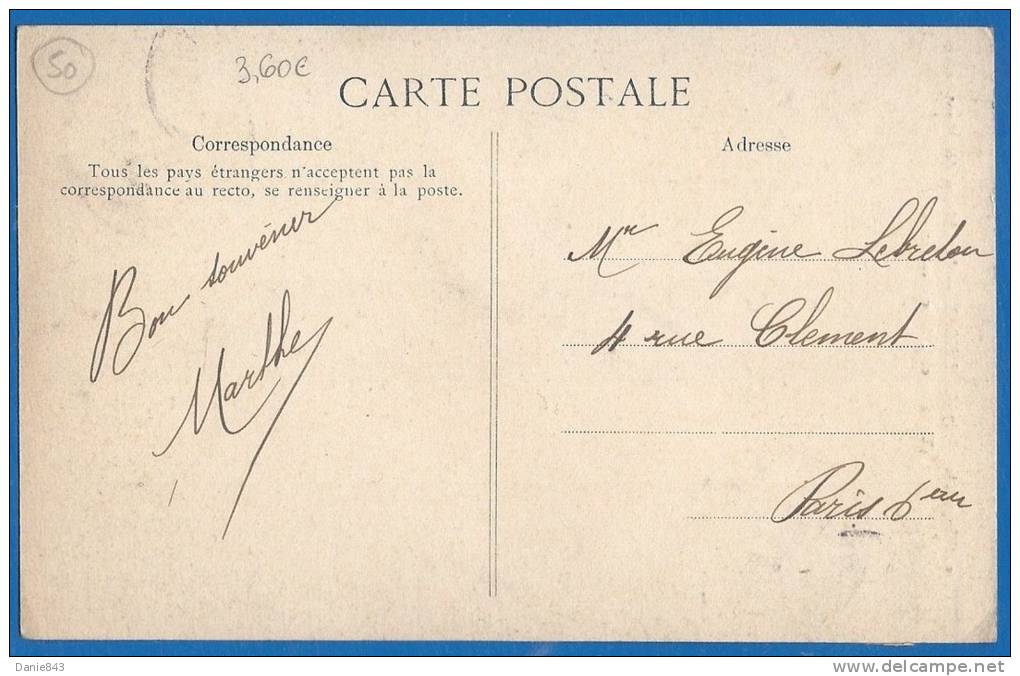 50
3,60€
CARTE POSTALE
Correspondance
Tous les pays étrangers n'acceptent pas la
correspondance au recto, se renseigner à la poste.
Bon souvenir
Marthe
Adresse
Mr Eugène Lebreton
4 rue Clement
Paris 6em
Danie843
www.delcampe.net